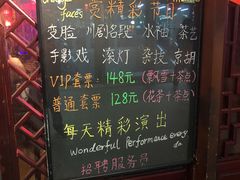 change
faces 亮精彩节目
变脸 川剧名段 水袖 茶艺
手影戏 滚灯 杂技 京胡
VIP套票：148元（飘雪＋茶点）
普通套票 128元（花茶＋茶点）
每天精彩演出
Wonderful Performance every da
招聘服务员